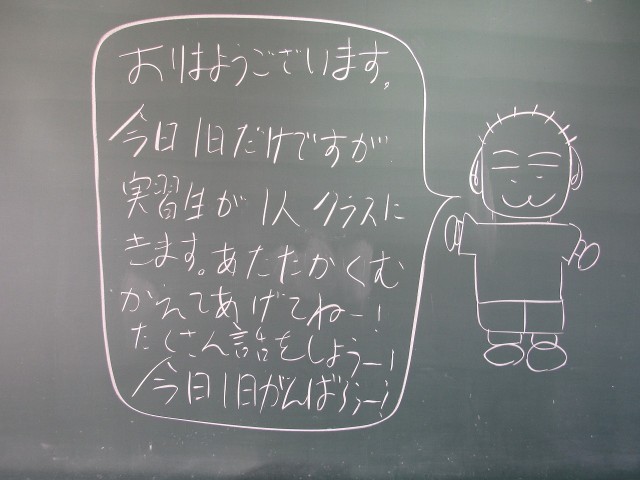 おはようございます。
今日1日だけですが
実習生が1人クラスに
きます。あたたかくむ
かえてあげてねー!
たくさん話をしようー!
今日1日がんばろうー!